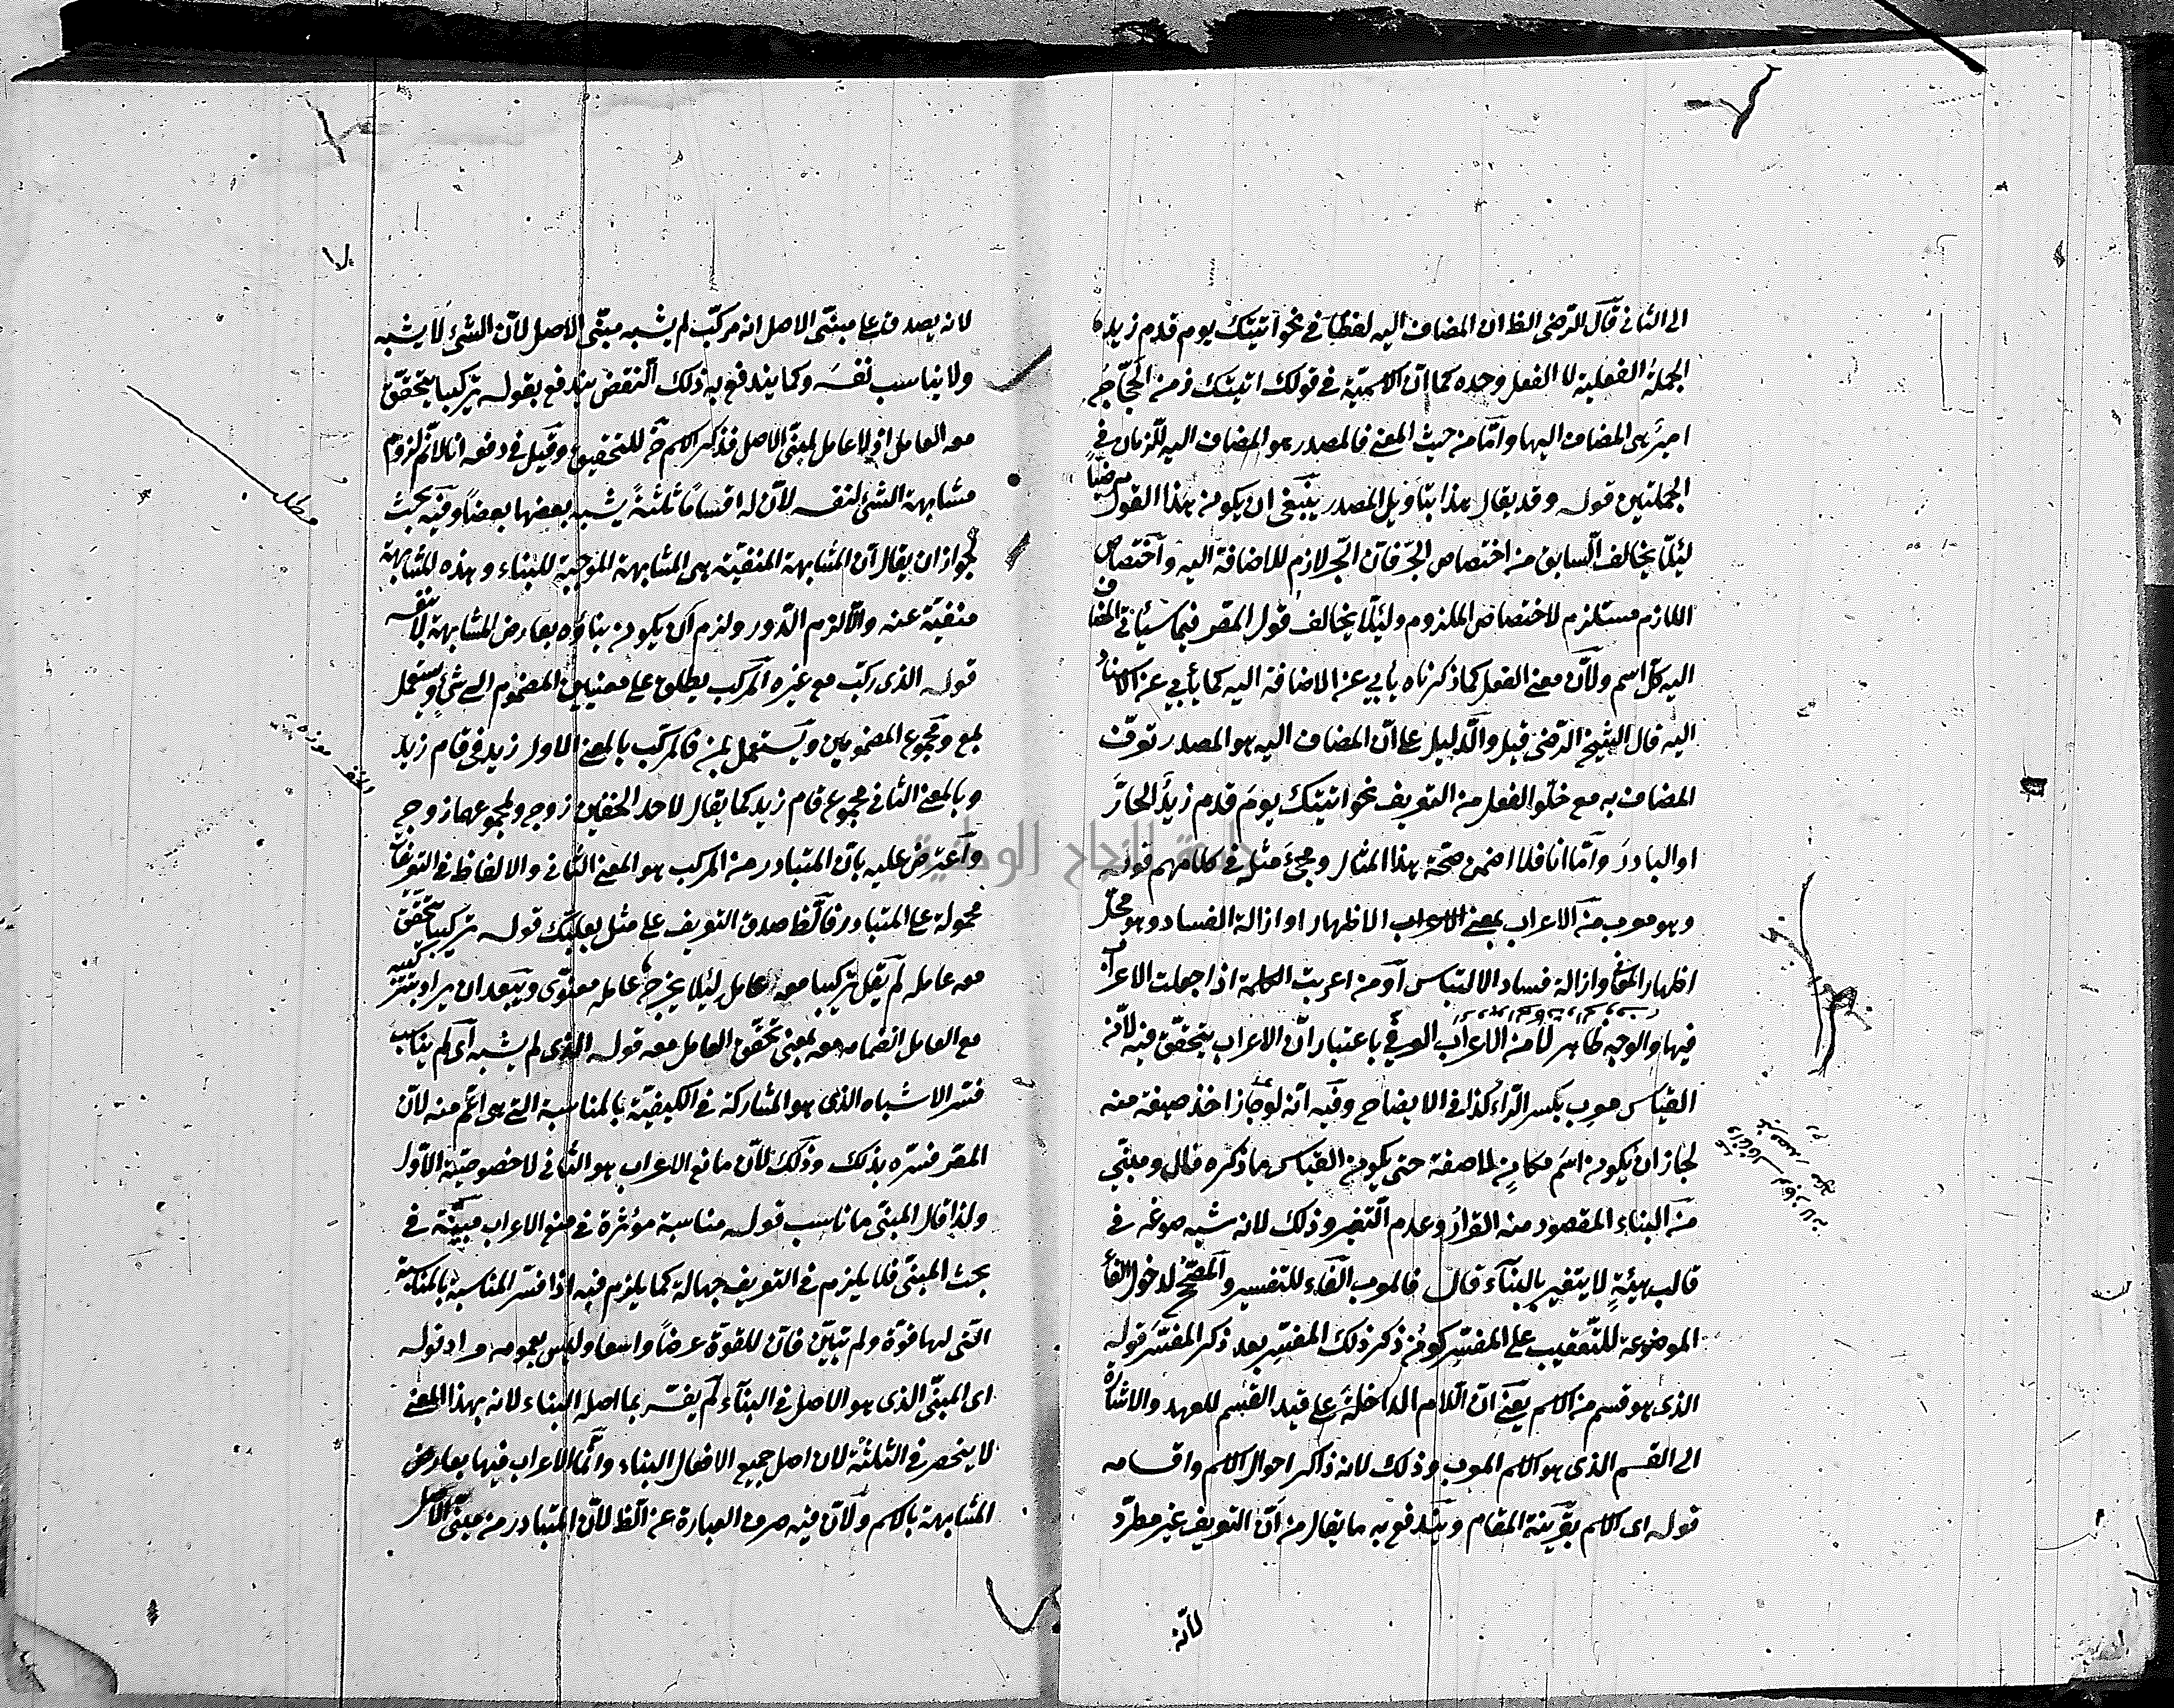 الى الثاني قال الرضى الظ ان المضاف اليه لفظا في نحو اتيتك يوم قدم زيد
الجملة الفعلية لا الفعل وحده كما ان الاسمية في قولك اتيتك زمن الحجاج
امير هى المضاف اليها واما من حيث المعنى فالمصدر هو المضاف اليه للزمان في
الجملتين قوله وقد يقال هذا بتأويل المصدر ينبغى ان يكون هذا القول
لئلا يخالف السابق من اختصاص الجر فان الجر لازم للاضافة اليه واختصاص
اللازم مستلزم لاختصاص الملزوم ولئلا يخالف قول المصر فيما سيأتي المضاف
اليه كل اسم ولان معنى الفعل كما ذكرناه يأبى عن الاضافة اليه كما يأبى عن الاسناد
اليه قال الشيخ الرضى قيل والدليل على ان المضاف اليه هو المصدر تعرف
المضاف به مع خلو الفعل من التعريف نحو اتيتك يوم قدم زيد الحار
او البارد واما انا فلا اضمن صحة هذا المثال ومجئ مثله في كلامهم قوله
وهو معرب من الاعراب بمعنى الاظهار او ازالة الفساد وهو محل
اظهار المعانى وازالة فساد الالتباس او من اعربت الكلمة اذا جعلت الاعراب
فيها والوجه ظاهر لا من الاعراب العرفي باعتبار ان الاعراب يتحقق فيه لان
القياس معرب بكسر الراء كذا في الايضاح وفيه انه لو جاز اخذ صيغة منه
لجاز ان يكون اسم مكان لا صفة حتى يكون القياس ما ذكره قال ومبنى
من البناء المقصود منه القرار وعدم التغير وذلك لانه شبه صوغه في
قالب هيئة لا يتغير بالبناء قال فالمعرب الفاء للتفسير والمصحح لدخول الفاء
الموضوعة للتعقيب على المفسر كون ذكر ذلك المفسر بعد ذكر المفسر قوله
الذى هو قسم من الاسم يعنى ان اللام الداخلة على قيد القسم للعهد والاشارة
الى القسم الذى هو الاسم المعرب وذلك لانه ذاكر احوال الاسم واقسامه
قوله اى الاسم بقرينة المقام ويندفع به ما يقال من ان التعريف غير مطرد
لانه
لانه يصدق على مبنى الاصل انه مركب لم يشبه مبنى الاصل لان الشئ لا يشبه
ولا يناسب نفسه وكما يندفع به ذلك النقض يندفع بقوله تركيبا يتحقق
معه العامل اذ لا عامل لمبنى الاصل فذكر الاسم ح للتحقيق وقيل في دفعه انا لا نم لزوم
مشابهة الشئ لنفسه لان له اقساما ثلثة يشبه بعضها بعضا وفيه بحث
لجواز ان يقال ان المشابهة المنفية هى المشابهة الموجبة للبناء وهذه المشابهة
منفية عنه والا لزم الدور ولزم ان يكون بناؤه بعارض المشابهة لا بنفسه
قوله الذى ركب مع غيره المركب يطلق على معنيين المضموم الى شئ ويستعمل
بمع ومجموع المضمومين ويستعمل بمن فالمركب بالمعنى الاول زيد في قام زيد
وبالمعنى الثانى مجموع قام زيد كما يقال لاحد الخفين زوج ولمجموعهما زوج
واعترض عليه بان المتبادر من المركب هو المعنى الثانى والالفاظ في التعريفات
محمولة على المتبادر فالظ صدق التعريف على مثل بعلبك قوله تركيبا يتحقق
معه عامله لم يقل تركيبا معه عامل لئلا يخرج عامله معنوى ويبعد ان يراد بتركيبه
مع العامل انضمامه معه بمعنى تحقق العامل معه قوله الذى لم يشبه اى لم يناسب
فسر الاشباه الذى هو المشاركة في الكيفية بالمناسبة التى هى اعم منه لان
المصر فسره بذلك وذلك لان مانع الاعراب هو الثانى لا خصوصية الاول
ولذا قال المبنى ما ناسب قوله مناسبة مؤثرة في منع الاعراب مبينة في
بحث المبنى فلا يلزم في التعريف جهالة كما يلزم فيه اذا فسر المناسبة بالمناسبة
التى لها قوة ولم تبين فان للقوة عرضا واسعا وليس بعمومه مراد قوله
اى المبنى الذى هو الاصل في البناء لم يفسر بما اصله البناء لانه بهذا المعنى
لا ينحصر في الثلثة لان اصل جميع الافعال البناء وانما الاعراب فيها بعارض
المشابهة بالاسم ولان فيه صرف العبارة عن الظ لان المتبادر من مبنى الاصل
مطلب
جامعة النجاح الوطنية